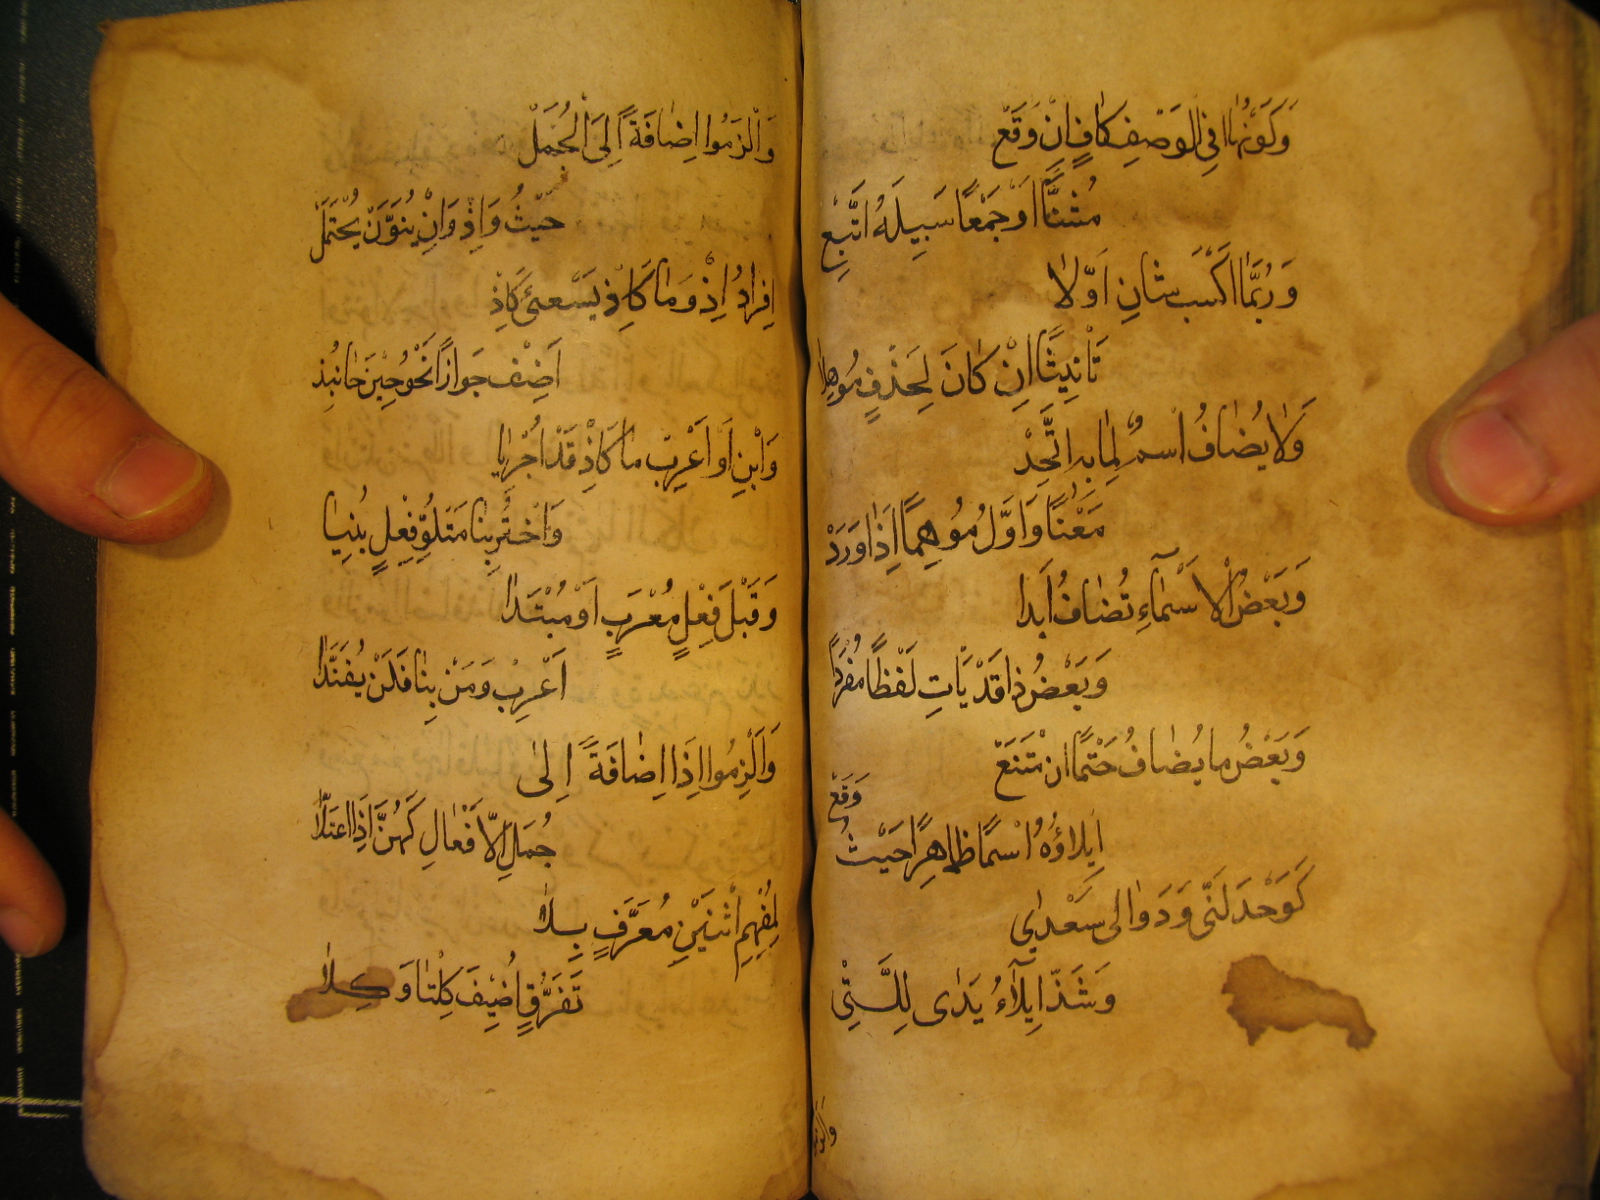 وَكَوْنُهَا فِي الوَصْفِ كَافٍ اِنْ وَقَعْ
مُثَنًّا اَوْ جَمْعًا سَبِيلَهُ اتَّبِعْ
وَرُبَّمَا اكْسَبَ ثَانٍ اَوَّلَا
تَانِيثًا اِنْ كَانَ لِحَذْفٍ مُوهِلَا
وَلَا يُضَافُ اسْمٌ لِمَا بِهِ اتَّحِدْ
مَعْنًا وَاَوَّلْ مُوهِمًا اِذَا وَرَدْ
وَبَعْضُ الْاَسْمَآءِ تُضَافُ اَبَدَا
وَبَعْضُ ذَا قَدْ يَاتِ لَفْظًا مُفْرَدًا
وَبَعْضُ مَا يُضَافُ حَتْمًا امْتَنَعْ
اِيلَاؤُهُ اسْمًا ظَاهِرًا حَيْثُ وَقَعْ
كَوَحْدَ لَبَّى وَدَوَالَى سَعْدَيْ
وَشَذَّ اِيلَآءُ يَدَى لِلَبَّىْ
وَاَلْزَمُوا اِضَافَةً اِلَى الْجُمَلْ
حَيْثُ وَاِذْ وَاِنْ يُنَوَّنْ يُحْتَمَلْ
اِفْرَادُ اِذْ وَمَا كَاِذْ يَسْعَى كَاِذْ
اَضِفْ جَوَازًا نَحْوُ حِينَ جَا نُبِذْ
وَابْنِ اَوْ اَعْرِبْ مَا كَاِذْ قَدْ اُجْرِيَا
وَاخْتَرْ بِنَا مَتْلُوِّ فِعْلٍ بُنِيَا
وَقَبْلَ فِعْلٍ مُعْرَبٍ اَوْ مُبْتَدَا
اَعْرِبْ وَمَنْ بِنَا فَلَنْ يُفَنَّدَا
وَاَلْزِمُوا اِذَا اِضَافَةً اِلَى
جُمَلِ الْاَفْعَالِ كَهُنَّ اِذَا اعْتَلَا
لِمُفْهِمِ اثْنَيْنِ مُعَرَّفٍ بِلَا
تَفَرُّقٍ اُضِيفَ كِلْتَا وَكِلَا